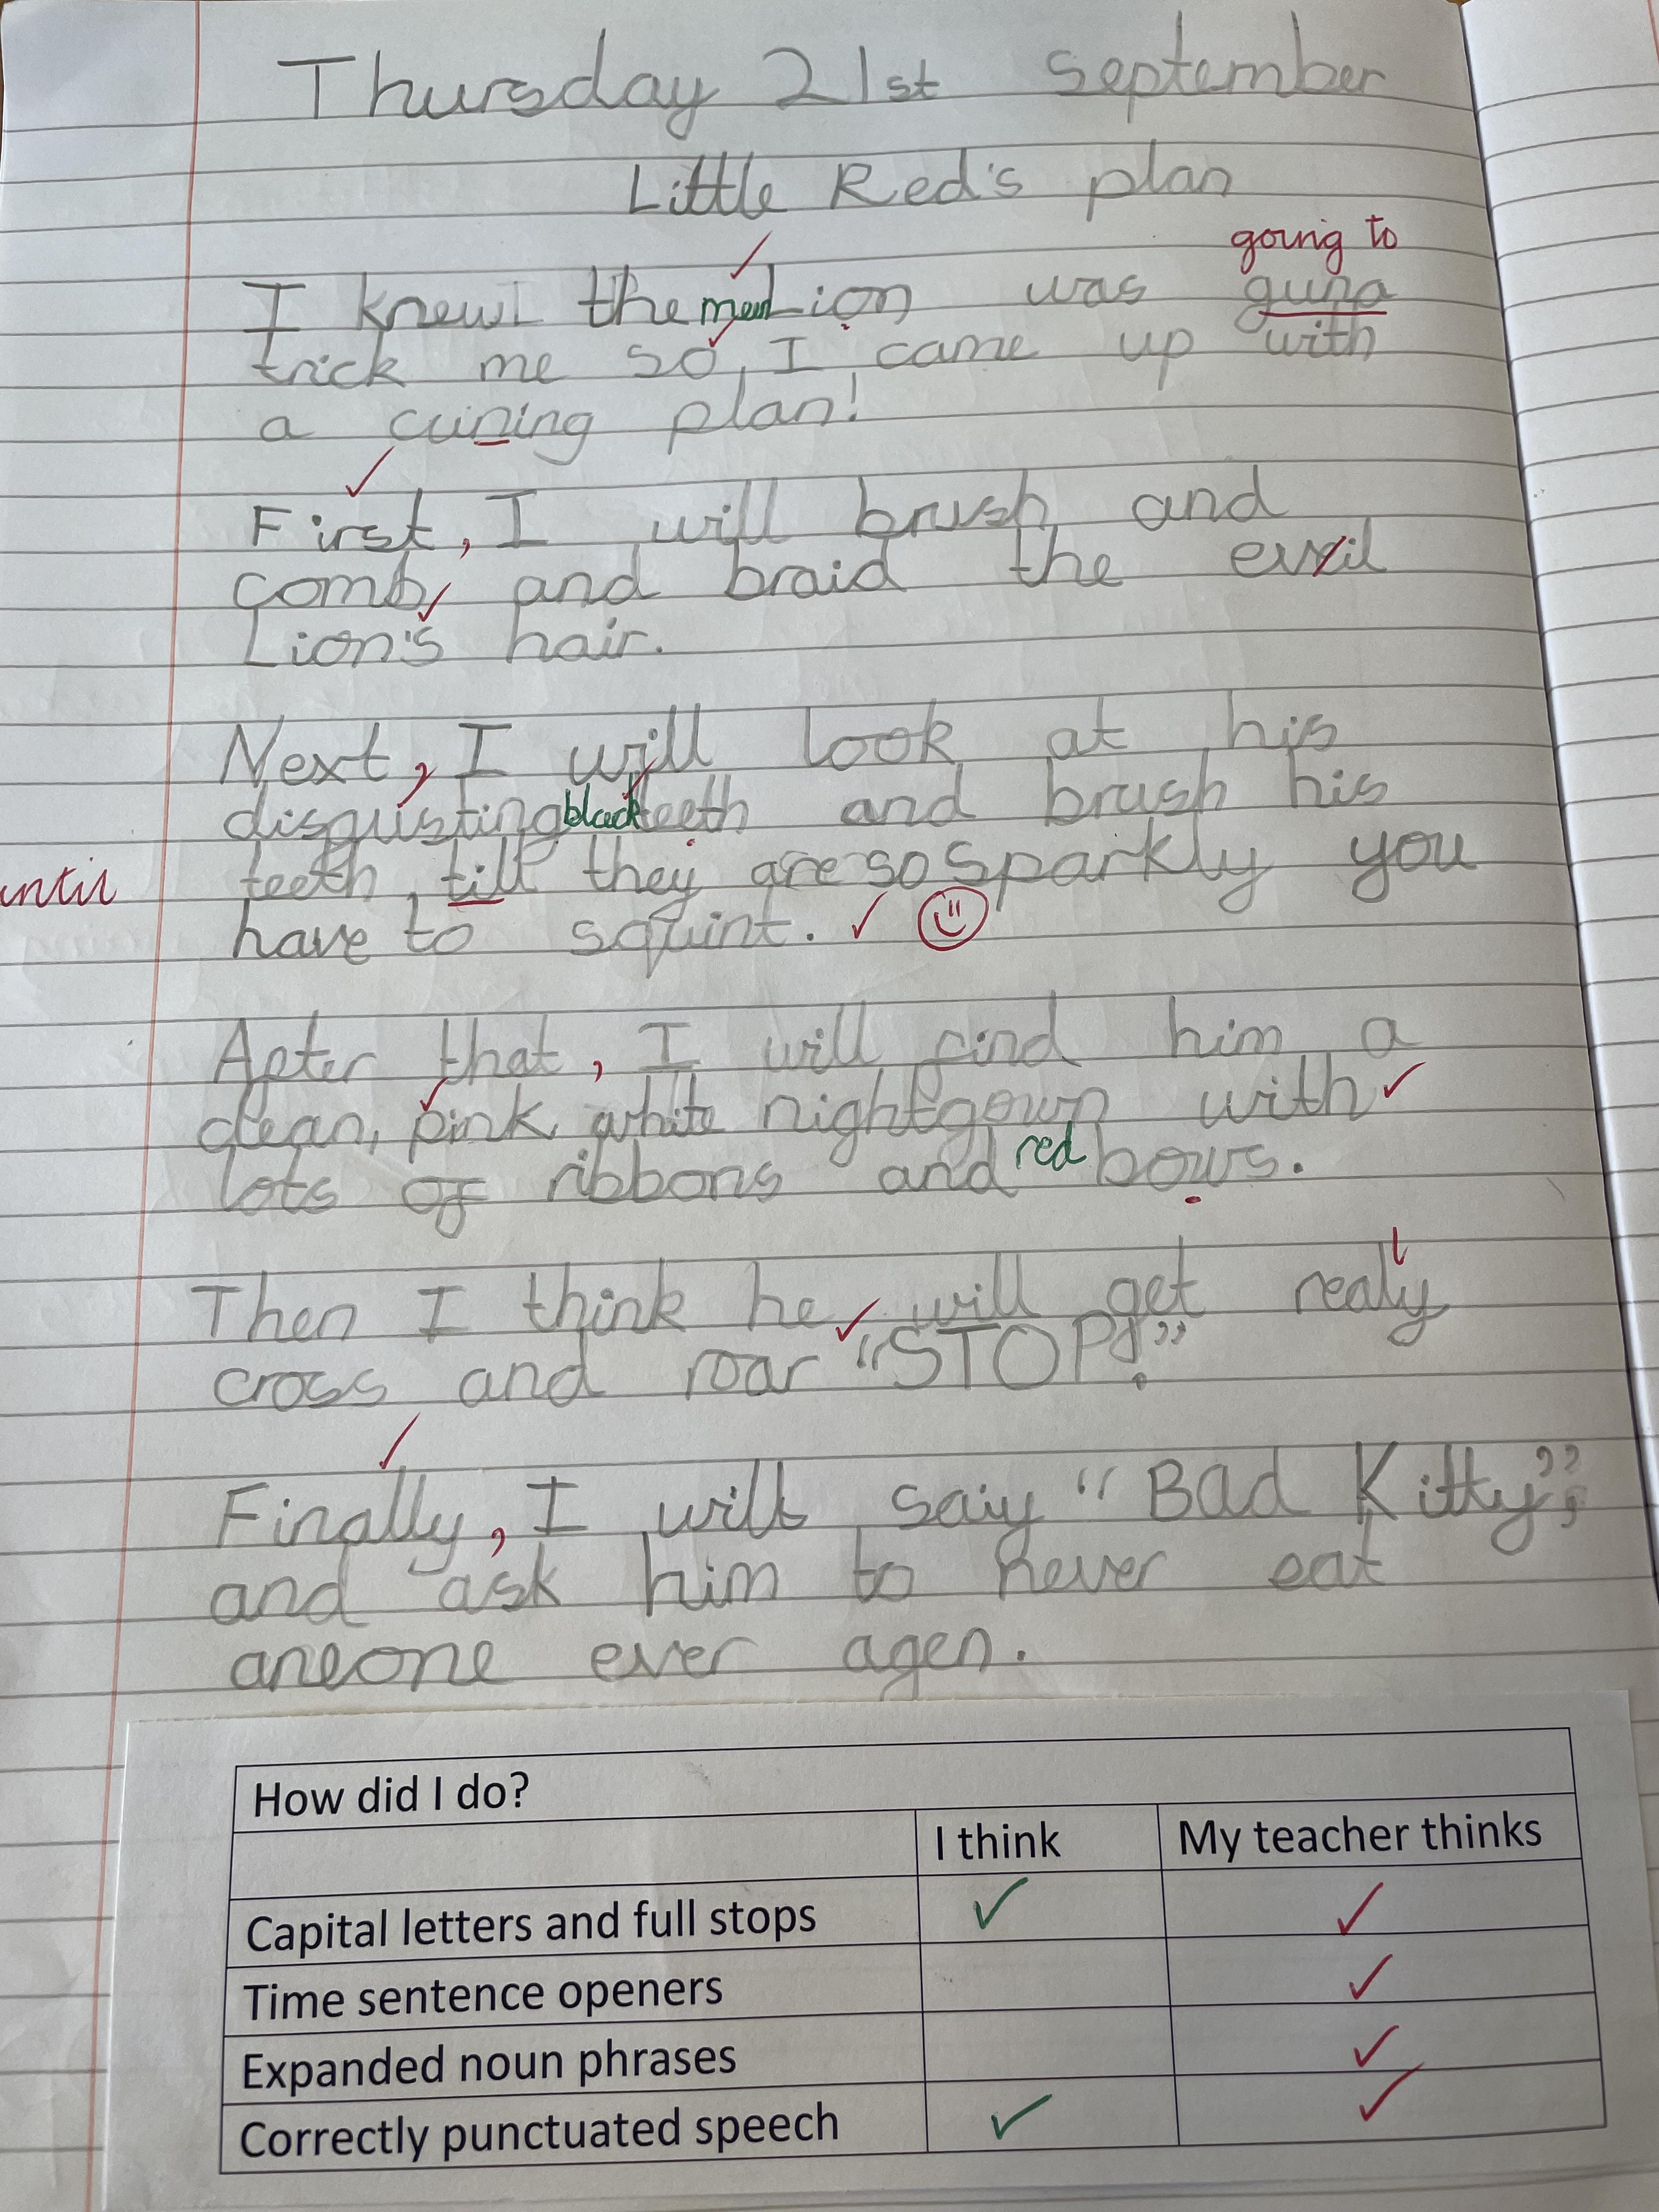 Thursday 21st September
Little Red's plan
going to
I knew the mean Lion was guna
trick me so, I came up with
a cuning plan!
First, I will brush and
comb, and braid the evil
Lion's hair.
Next, I will look at his
disgusting black teeth and brush his
until teeth, till they are so sparkly you
have to squint.
After that, I will find him a
clean, pink, white nightgown with
lots of ribbons and red bows.
l
Then I think he will get realy
cross and roar “STOP!”
Finally, I will say “Bad Kitty”,
and ask him to never eat
aneone ever agen.
How did I do?
I think My teacher thinks
Capital letters and full stops ✓ ✓
Time sentence openers ✓
Expanded noun phrases ✓
Correctly punctuated speech ✓ ✓